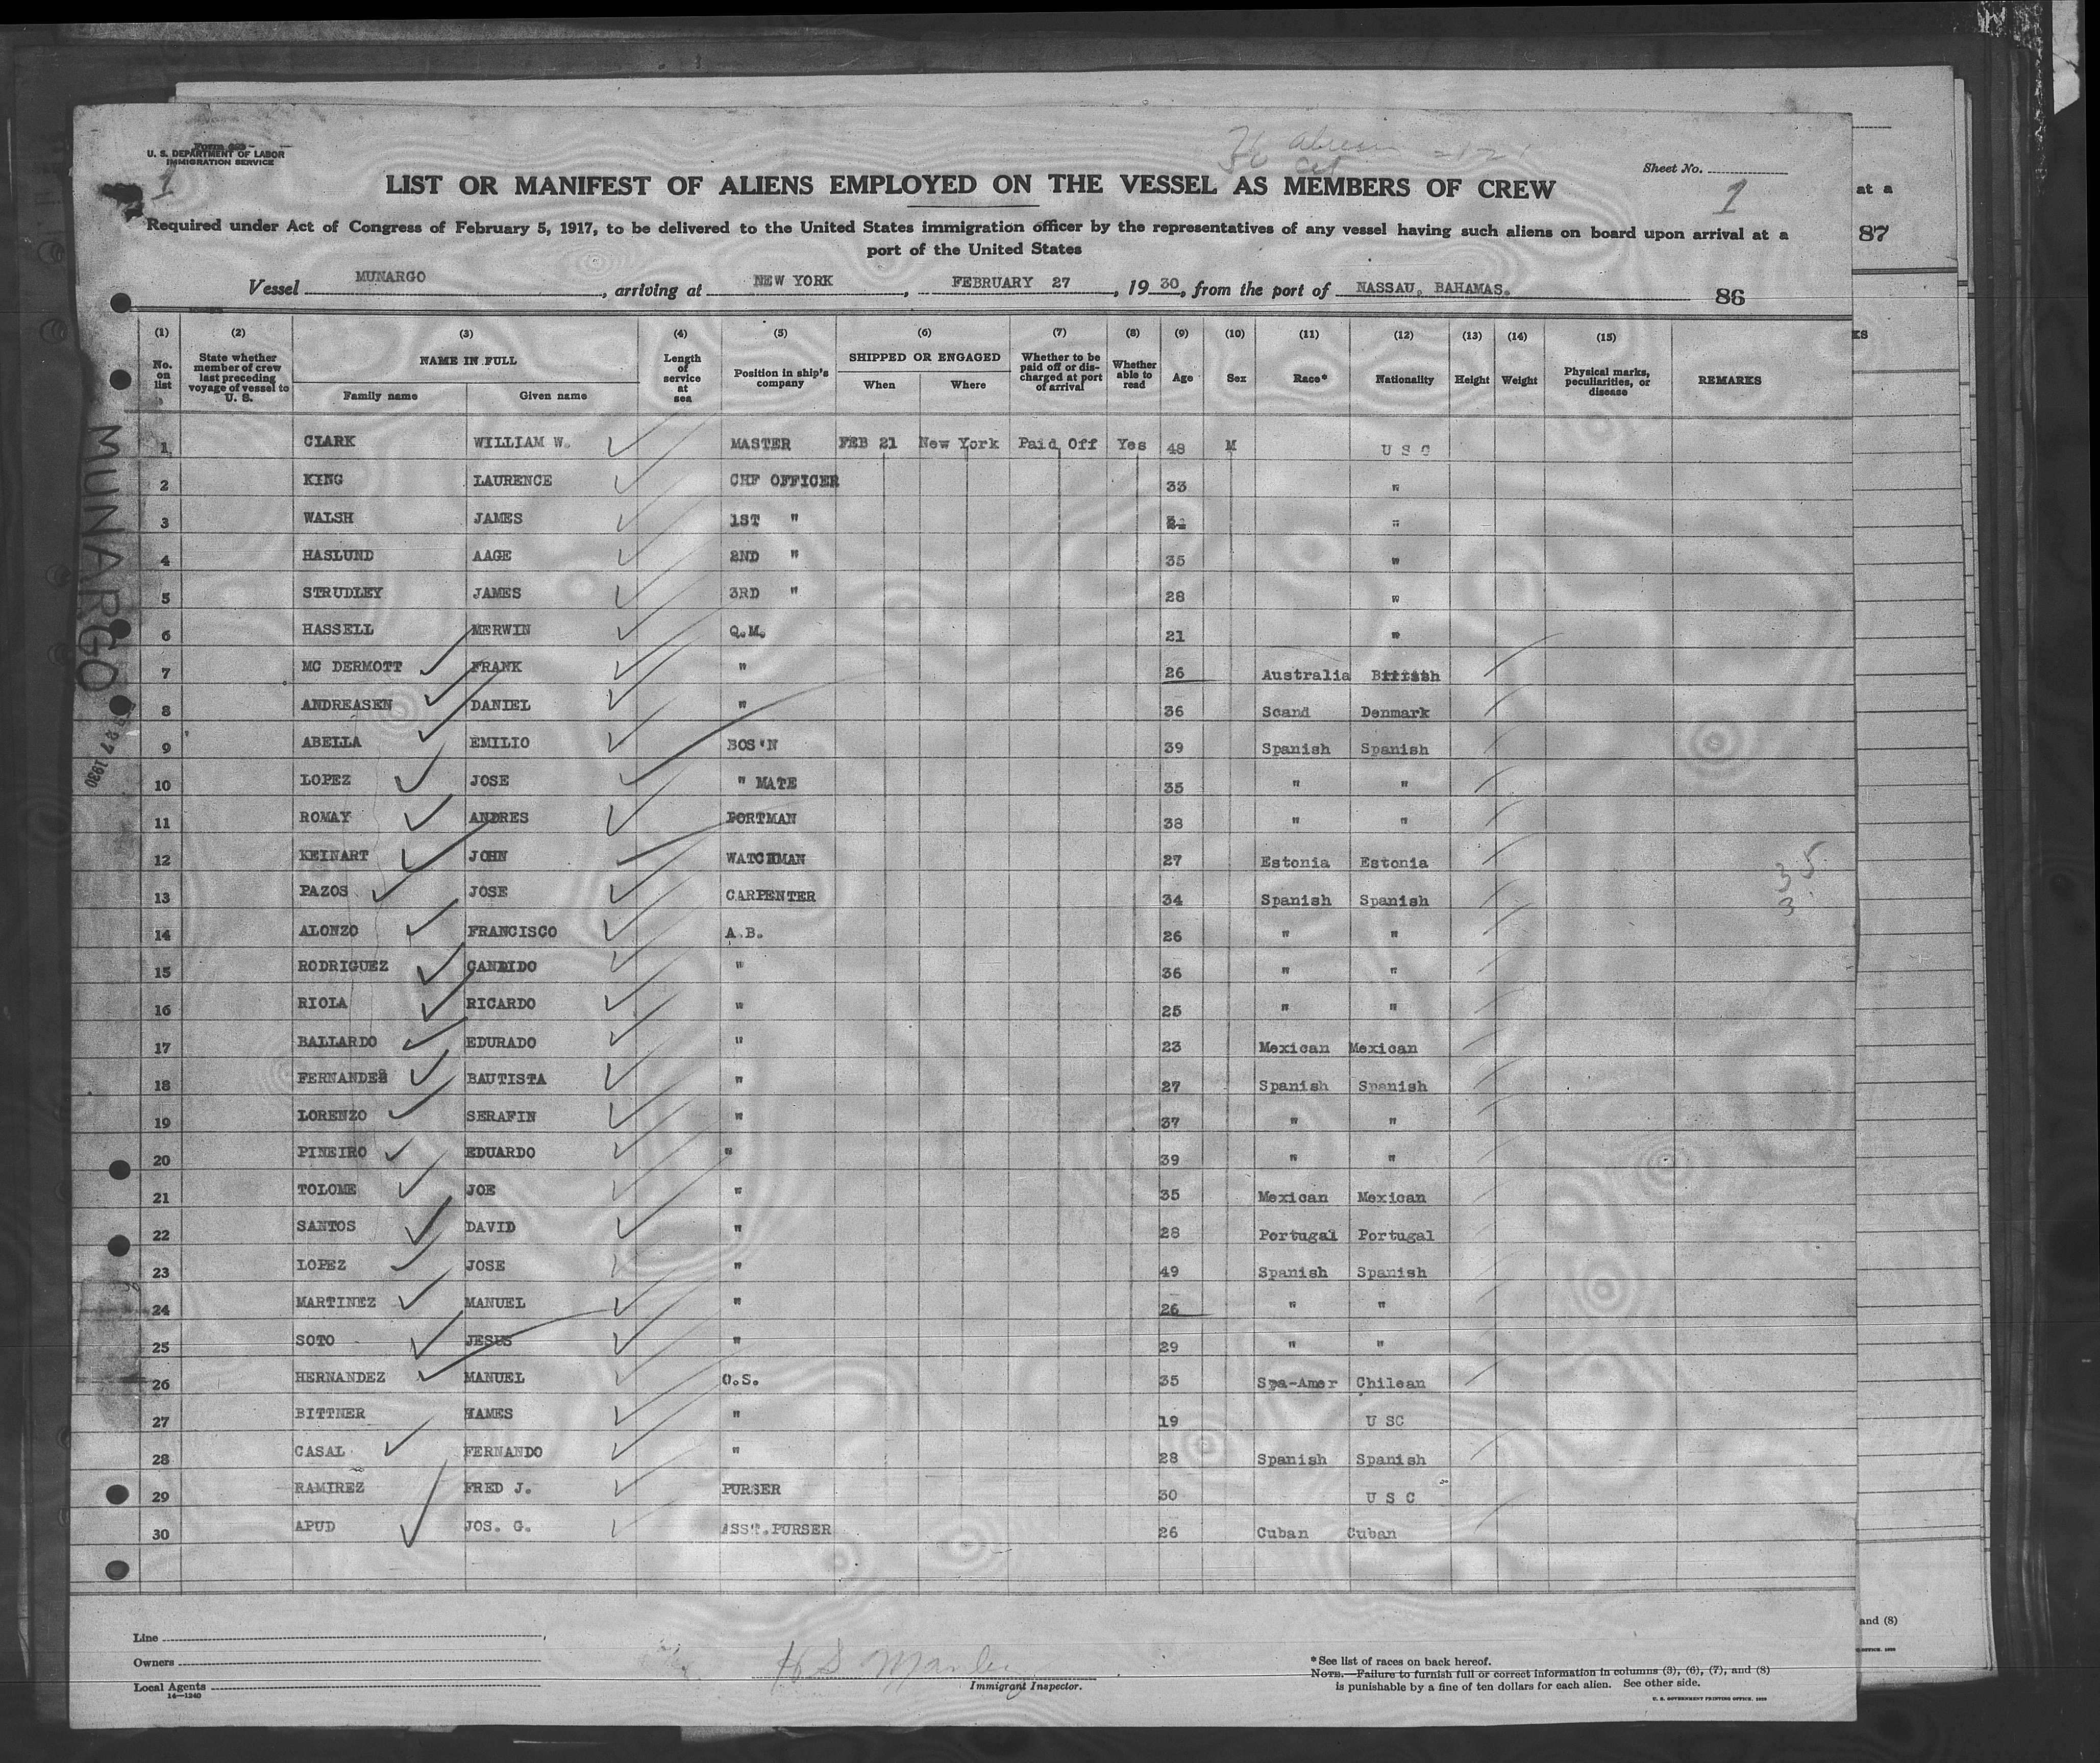 U. S. DEPARTMENT OF LABOR
IMMIGRATION SERVICE
1
Sheet No.
1
LIST OR MANIFEST OF ALIENS EMPLOYED ON THE VESSEL AS MEMBERS OF CREW
Required under Act of Congress of February 5, 1917, to be delivered to the United States immigration officer by the representatives of any vessel having such aliens on board upon arrival at a
port of the United States
Vessel MUNARGO, arriving at NEW YORK, FEBRUARY 27, 1930, from the port of NASSAU, BAHAMAS. 86
at a
87
(1) (2) (3) (4) (5) (6) (7) (8) (9) (10) (11) (12) (13) (14) (15)
No. on list
State whether member of crew last preceding voyage of vessel to U. S.
NAME IN FULL
Family name Given name
Length of service at sea
Position in ship's company
SHIPPED OR ENGAGED
When Where
Whether to be paid off or discharged at port of arrival
Whether able to read
Age
Sex
Race*
Nationality
Height
Weight
Physical marks, peculiarities, or disease
REMARKS
KS
1 CLARK WILLIAM W. MASTER FEB 21 New York Paid Off Yes 48 M U S C
2 KING LAURENCE CHF OFFICER 33 "
3 WALSH JAMES 1ST " "
4 HASLUND AAGE 2ND " 35 "
5 STRUDLEY JAMES 3RD " 28 "
6 HASSELL MERWIN Q.M. 21 "
7 MC DERMOTT FRANK " 26 Australia British
8 ANDREASEN DANIEL " 36 Scand Denmark
9 ABELLA EMILIO BOS'N 39 Spanish Spanish
10 LOPEZ JOSE " MATE 35 " "
11 ROMAY ANDRES PORTMAN 38 " "
12 KEINART JOHN WATCHMAN 27 Estonia Estonia
13 PAZOS JOSE CARPENTER 34 Spanish Spanish
14 ALONZO FRANCISCO A.B. 26 " "
15 RODRIGUEZ CANDIDO " 36 " "
16 RIOLA RICARDO " 25 " "
17 BALLARDO EDURADO " 23 Mexican Mexican
18 FERNANDEZ BAUTISTA " 27 Spanish Spanish
19 LORENZO SERAFIN " 37 " "
20 PINEIRO EDUARDO " 39 " "
21 TOLOME JOE " 35 Mexican Mexican
22 SANTOS DAVID " 28 Portugal Portugal
23 LOPEZ JOSE " 49 Spanish Spanish
24 MARTINEZ MANUEL " 26 " "
25 SOTO JESUS " 29 " "
26 HERNANDEZ MANUEL O.S. 35 Spa-Amer Chilean
27 BITTNER HAMES " 19 U SC
28 CASAL FERNANDO " 28 Spanish Spanish
29 RAMIREZ FRED J. PURSER 30 U S C
30 APUD JOS. G. ASST.PURSER 26 Cuban Cuban
35
3
MUNARGO
27 1930
Line
Owners
Local Agents
14—1240
Immigrant Inspector.
*See list of races on back hereof.
NOTE.—Failure to furnish full or correct information in columns (3), (6), (7), and (8)
is punishable by a fine of ten dollars for each alien. See other side.
U. S. GOVERNMENT PRINTING OFFICE.
and (8)